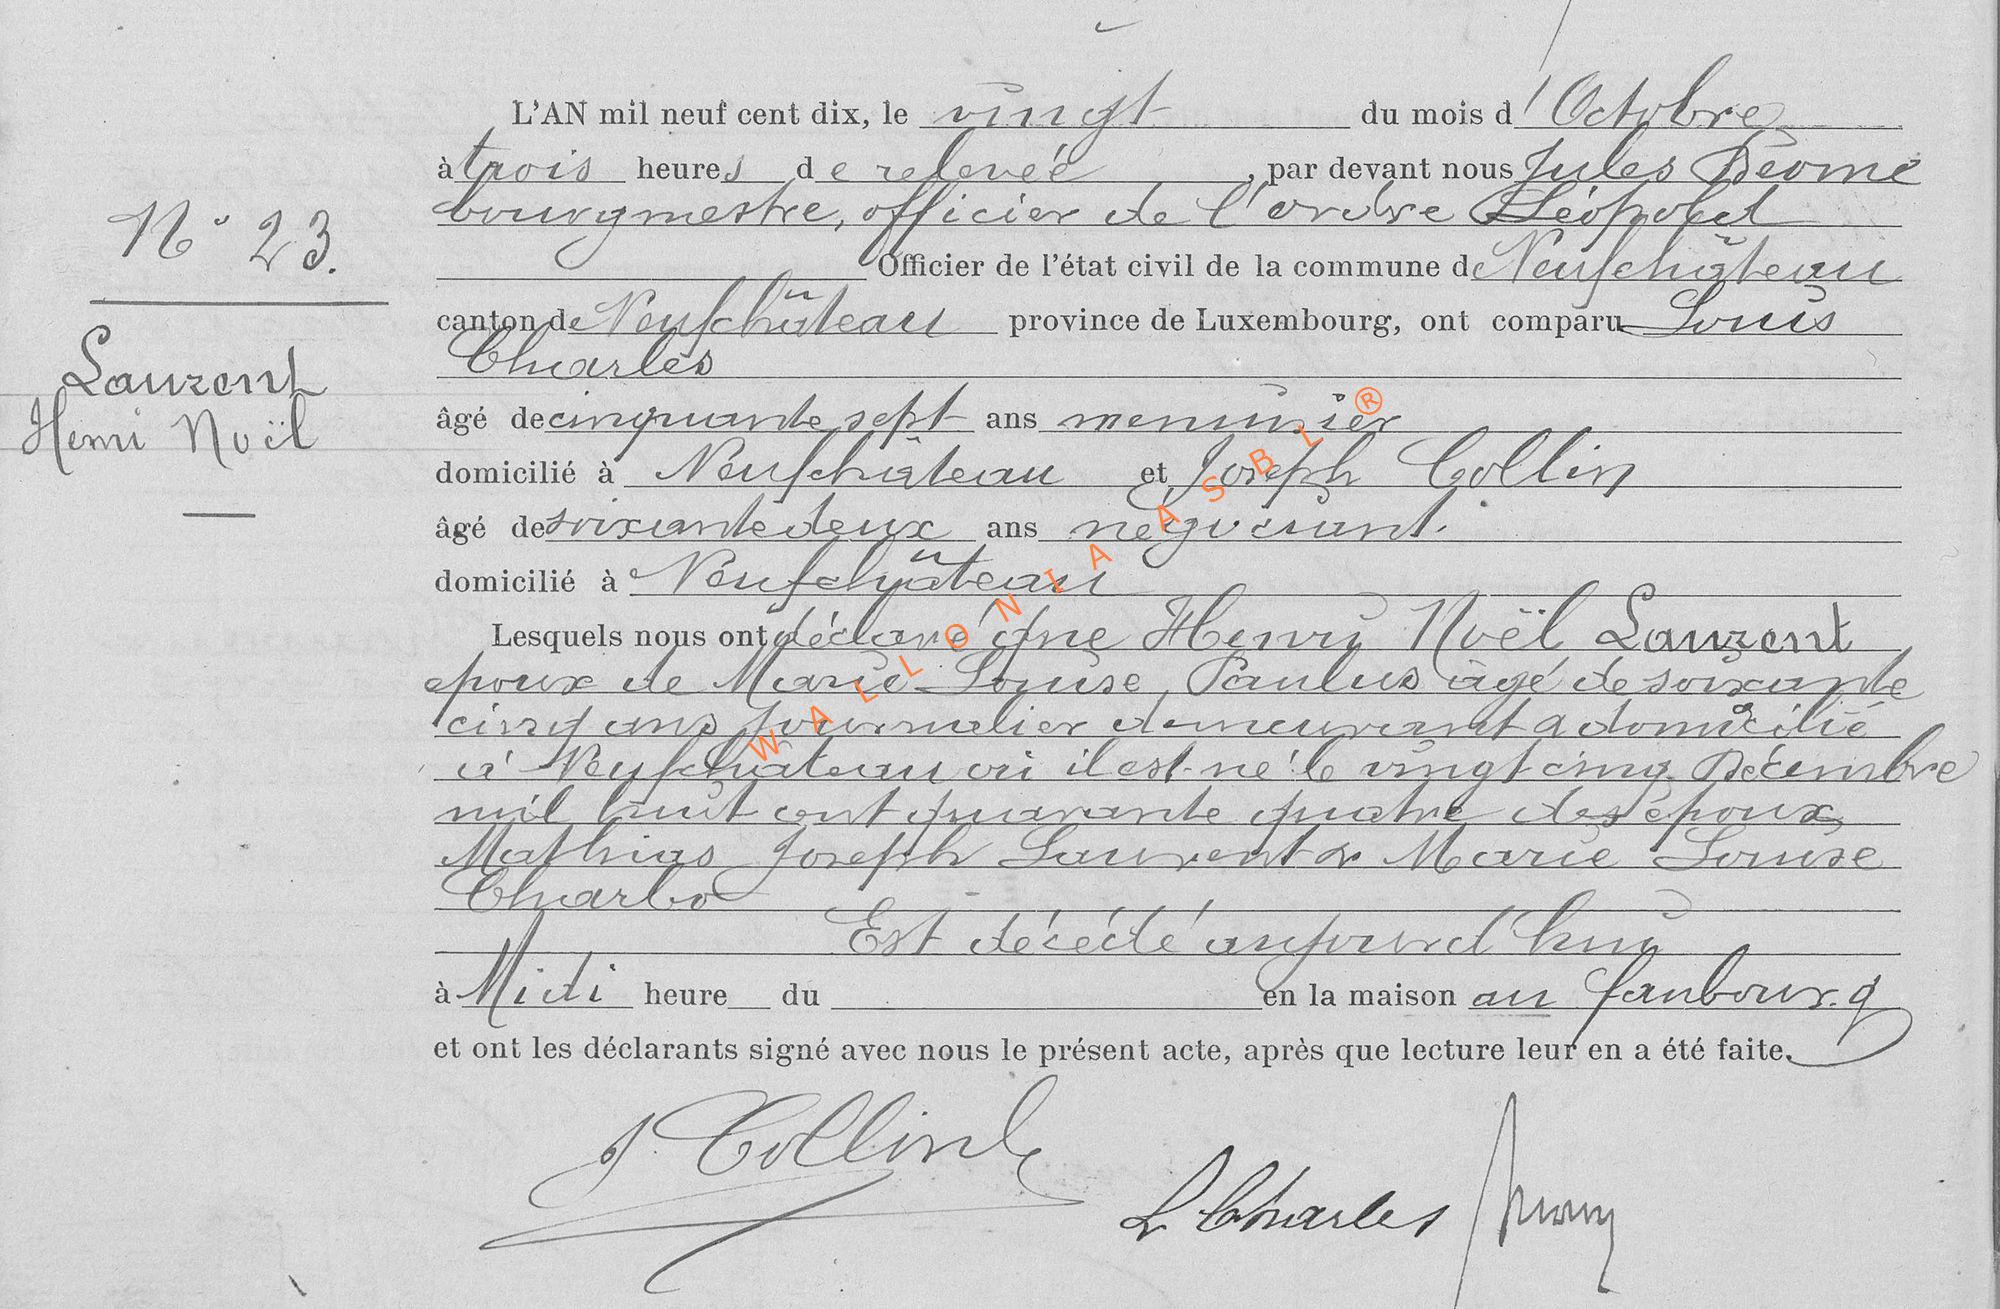 N° 23.
Laurent
Henri Noël
L'AN mil neuf cent dix, le vingt du mois d'Octobre
à trois heures de relevée, par devant nous Jules Déome
bourgmestre, officier de l'ordre Léopold
Officier de l'état civil de la commune de Neufchâteau
canton de Neufchâteau province de Luxembourg, ont comparu Louis
Charles
âgé de cinquante sept ans menuisier
domicilié à Neufchâteau et Joseph Collin
âgé de soixante deux ans négociant.
domicilié à Neufchâteau
Lesquels nous ont déclaré que Henri Noël Laurent
époux de Marie-Louise Paulus âgé de soixante
cinq ans journalier demeurant & domicilié
à Neufchâteau où il est né le vingt cinq Décembre
mil huit cent quarante quatre des époux
Mathias Joseph Laurent & Marie Louise
Charlo
Est décédé aujourd'hui
à Midi heure du en la maison au faubourg
et ont les déclarants signé avec nous le présent acte, après que lecture leur en a été faite.
J. Collin
L. Charles
WALLONIA ASBL ®